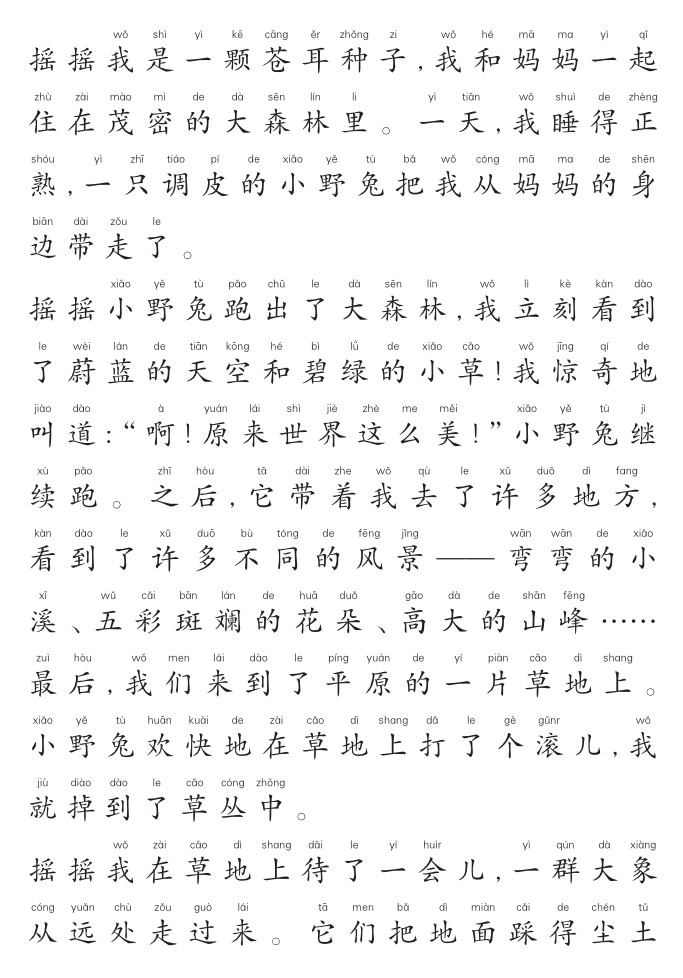 wǒ shì yì kē cāng ěr zhǒng zi wǒ hé mā ma yì qǐ
摇摇我是一颗苍耳种子,我和妈妈一起
zhù zài mào mì de dà sēn lín li yì tiān wǒ shuì de zhèng
住在茂密的大森林里。一天,我睡得正
shóu yì zhī tiáo pí de xiǎo yě tù bǎ wǒ cóng mā ma de shēn
熟,一只调皮的小野兔把我从妈妈的身
biān dài zǒu le
边带走了。
xiǎo yě tù pǎo chū le dà sēn lín wǒ lì kè kàn dào
摇摇小野兔跑出了大森林,我立刻看到
le wèi lán de tiān kōng hé bì lǜ de xiǎo cǎo wǒ jīng qí de
了蔚蓝的天空和碧绿的小草!我惊奇地
jiào dào à yuán lái shì jiè zhè me měi xiǎo yě tù jì
叫道:“啊!原来世界这么美!”小野兔继
xù pǎo zhī hòu tā dài zhe wǒ qù le xǔ duō dì fang
续跑。之后,它带着我去了许多地方,
kàn dào le xǔ duō bù tóng de fēng jǐng wān wān de xiǎo
看到了许多不同的风景——弯弯的小
xī wǔ cǎi bān lán de huā duǒ gāo dà de shān fēng
溪、五彩斑斓的花朵、高大的山峰……
zuì hòu wǒ men lái dào le píng yuán de yí piàn cǎo dì shang
最后,我们来到了平原的一片草地上。
xiǎo yě tù huān kuài de zài cǎo dì shang dǎ le gè gǔnr wǒ
小野兔欢快地在草地上打了个滚儿,我
jiù diào dào le cǎo cóng zhōng
就掉到了草丛中。
wǒ zài cǎo dì shang dāi le yí huìr yì qún dà xiàng
摇摇我在草地上待了一会儿,一群大象
cóng yuǎn chù zǒu guò lái tā men bǎ dì miàn cǎi de chén tǔ
从远处走过来。它们把地面踩得尘土